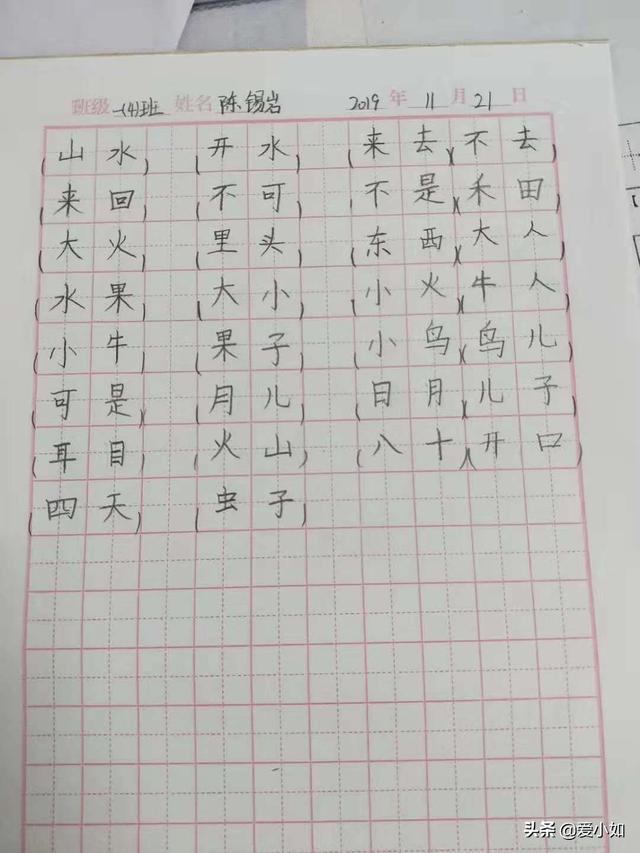 班级 一(4)班 姓名 陈锡岩 2019 年 11 月 21 日
(山水) (开水) (来去)(不去)
(来回) (不可) (不是)(禾田)
(大火) (里头) (东西)(大人)
(水果) (大小) (小火)(牛人)
(小牛) (果子) (小鸟)(鸟儿)
(可是) (月儿) (日月)(儿子)
(耳目) (火山) (八十)(开口)
(四天) (虫子)
头条 @爱小如